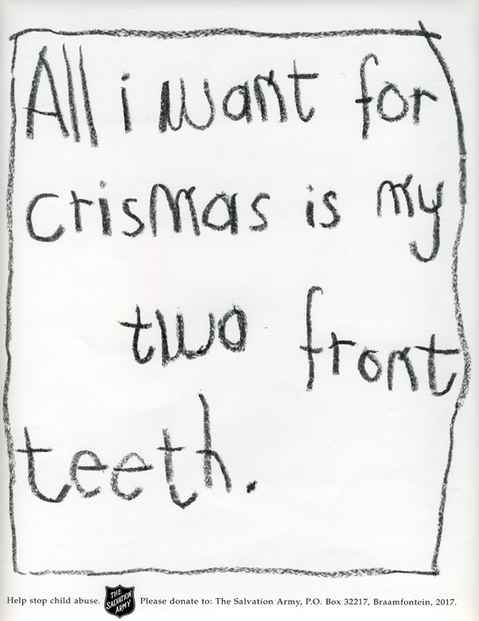 All i want for
crismas is my
two front
teeth.
Help stop child abuse. THE SALVATION ARMY Please donate to: The Salvation Army, P.O. Box 32217, Braamfontein, 2017.